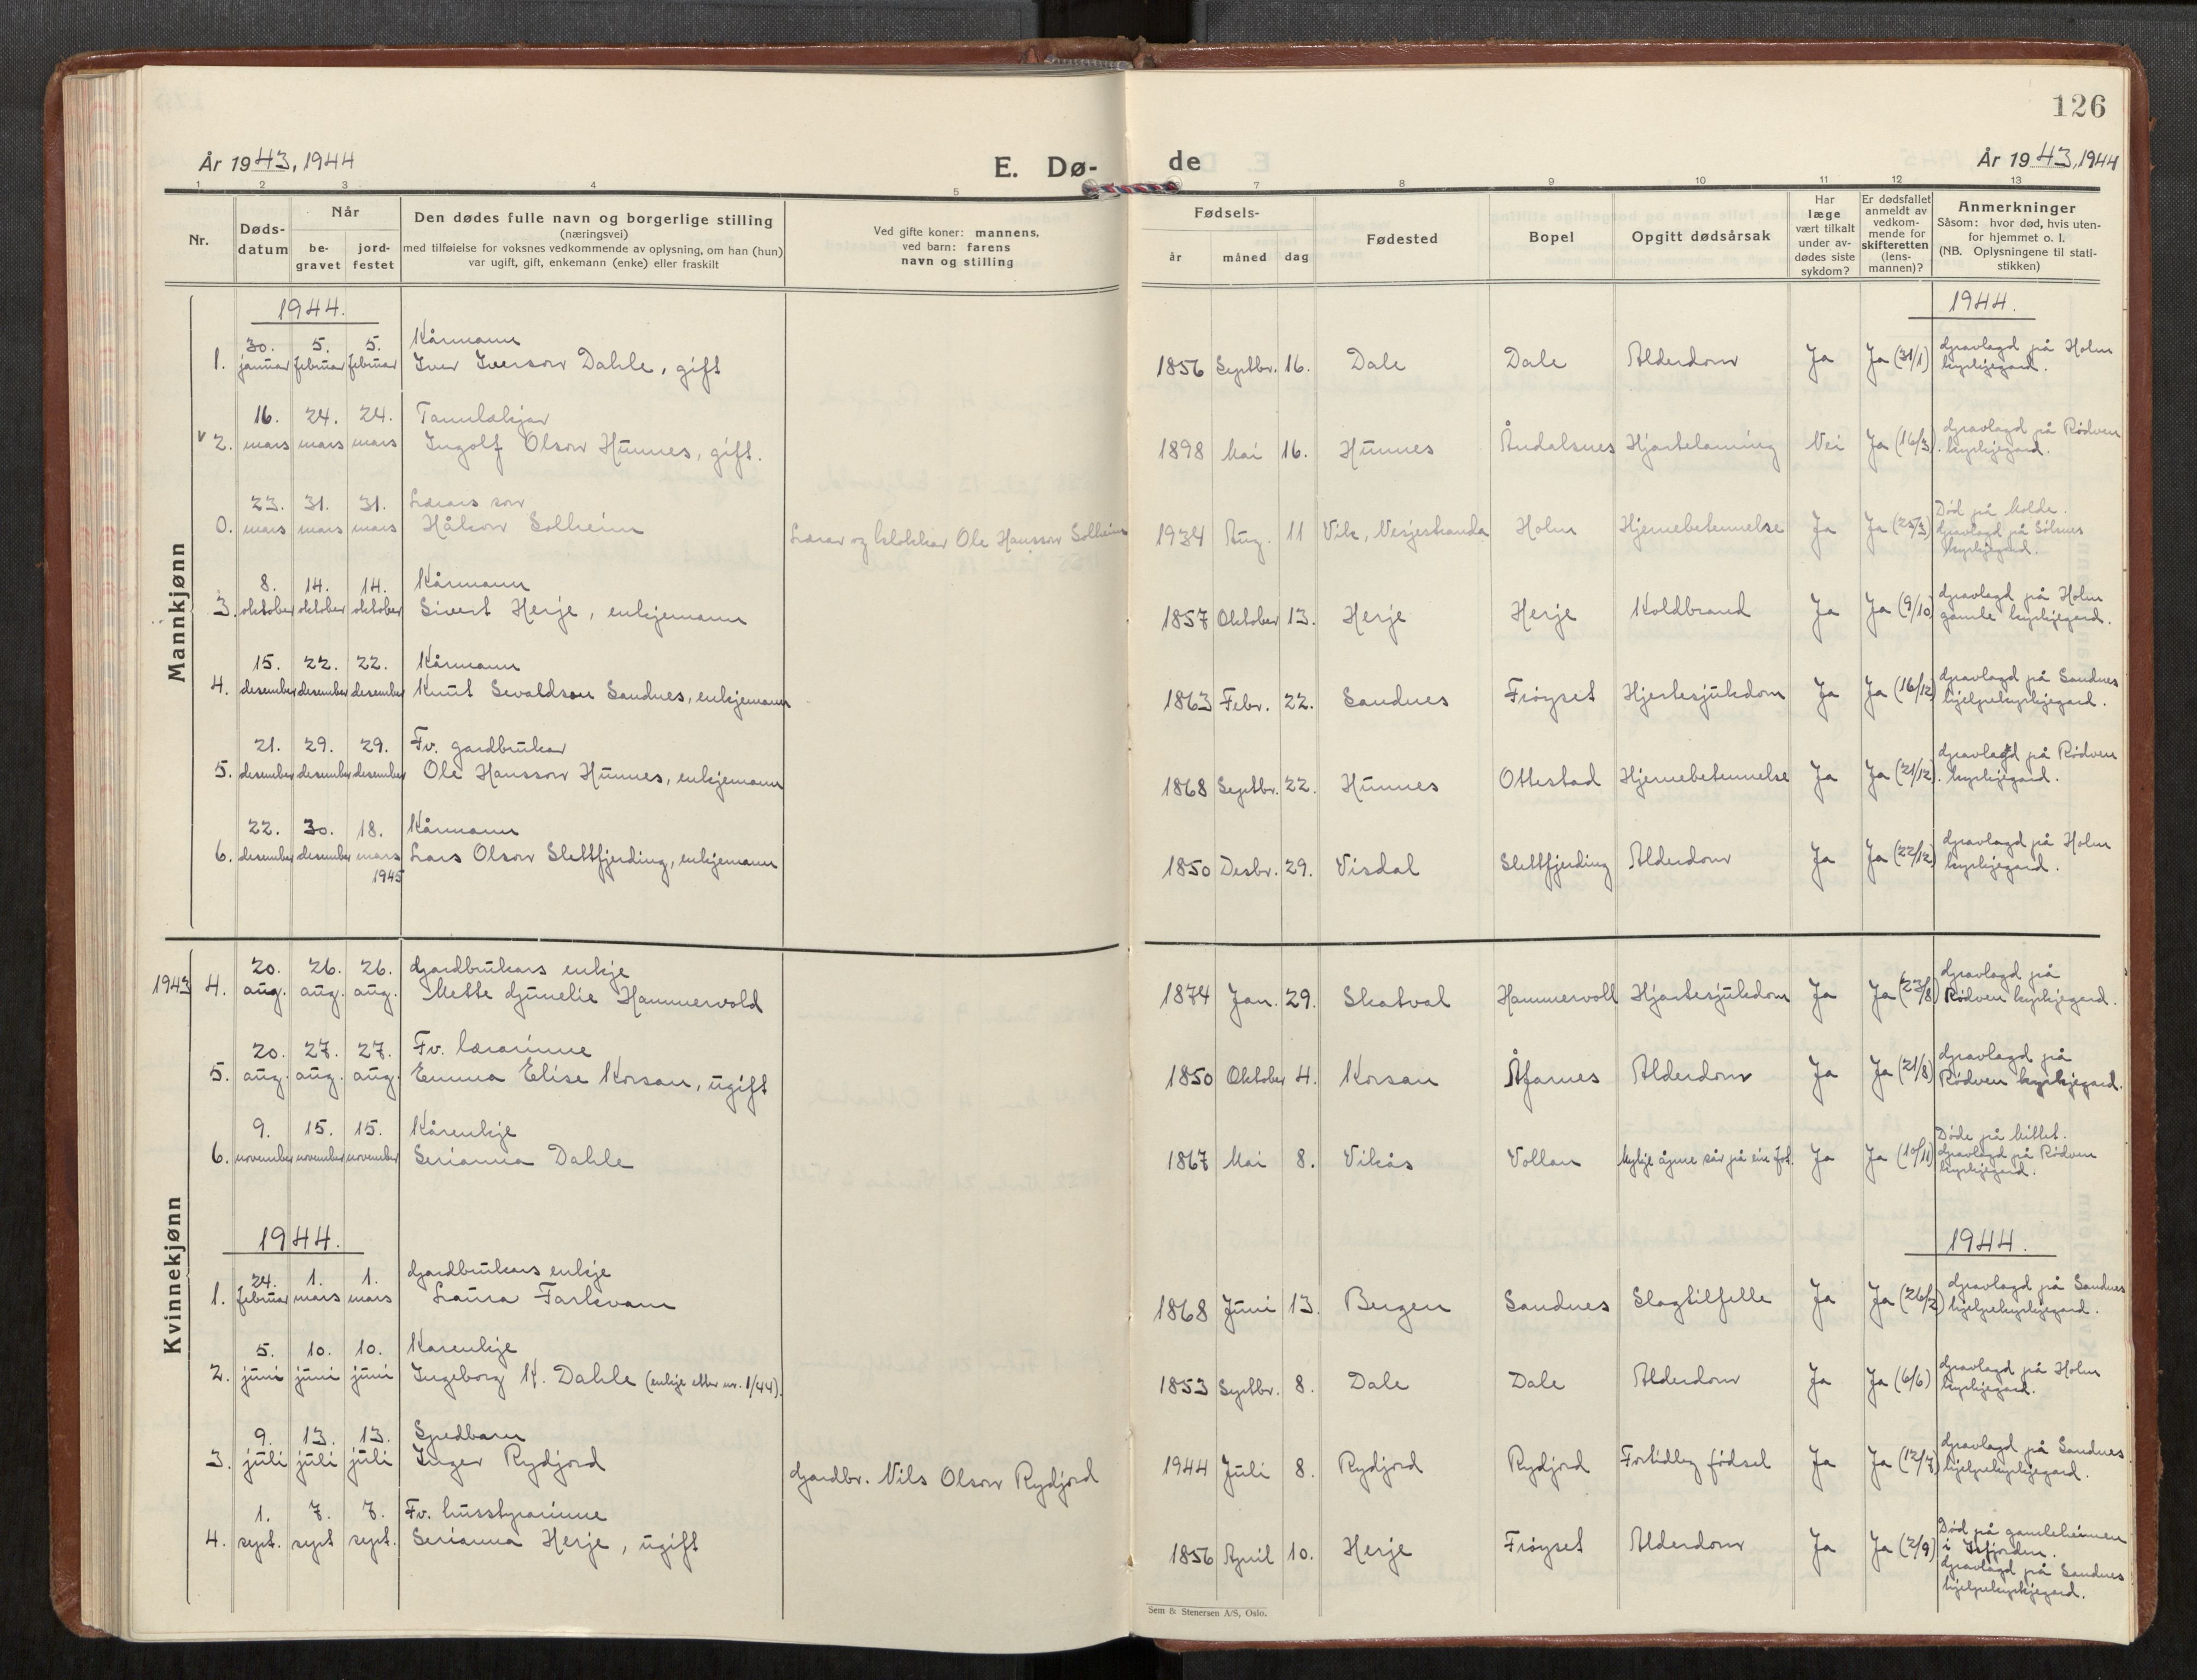 126
År 1943, 1944
E. Dø-
de
År 1943, 1944
1 2 3 4 5 7 8 9 10 11 12 13
Nr.
Døds-
datum
Når
be-
gravet
jord-
festet
Den dødes fulle navn og borgerlige stilling
(næringsvei)
med tilføielse for voksnes vedkommende av oplysning, om han (hun)
var ugift, gift, enkemann (enke) eller fraskilt
Ved gifte koner: mannens,
ved barn: farens
navn og stilling
Fødsels-
år måned dag
Fødested
Bopel
Opgitt dødsårsak
Har
læge
vært tilkalt
under av-
dødes siste
sykdom?
Er dødsfallet
anmeldt av
vedkom-
mende for
skifteretten
(lens-
mannen)?
Anmerkninger
Såsom: hvor død, hvis uten-
for hjemmet o. l.
(NB. Oplysningene til stati-
stikken)
Mannkjønn
1944.
1944.
30. 5. 5. Kårmann
1. januar februar februar Iver Iverson Dahle, gift 1856 Septbr. 16. Dale Dale Alderdom Ja Ja (31/1) Gravlagd på Holm
kyrkjegard.
16. 24. 24. Tannlækjar
2. mars mars mars Ingolf Olson Hunnes, gift. 1898 Mai 16. Hunnes Åndalsnes Hjartelaming Nei Ja (16/3). Gravlagd på Rødven
kyrkjegard.
23. 31. 31. Lærars son
0. mars mars mars Håkon Solheim Lærar og klokkar Ole Hansson Solheim 1934 Aug. 11 Vik, Vesjestranda Holm Hjernebetennelse Ja Ja (25/3) Død på Molde.
Gravlagd på Sølsnes
kyrkjegard.
8. 14. 14. Kårmann
3. oktober oktober oktober Sivert Herje, enkjemann 1857 Oktober 13. Herje Herje Koldbrand Ja Ja (9/10) Gravlagd på Holm
gamle kyrkjegard.
15. 22. 22. Kårmann
4. desember desember desember Knut Sevaldson Sandnes, enkjemann 1863 Febr. 22. Sandnes Frøyset Hjertesjukdom Ja Ja (16/12) Gravlagd på Sandnes
hjelpekyrkjegard.
21. 29. 29. Fv. gardbrukar
5. desember desember desember Ole Hansson Hunnes, enkjemann 1868 Septbr. 22. Hunnes Ottestad Hjernebetennelse Ja Ja (21/12). Gravlagd på Rødven
kyrkjegard.
22. 30. 18. Kårmann
6. desember desember mars Lars Olson Slettfjerding, enkjemann 1850 Desbr. 29. Visdal Slettfjerding Alderdom Ja Ja (22/12) Gravlagd på Holm
kyrkjegard.
1945
Kvinnekjønn
20. 26. 26. Gardbrukars enkje
1943 4. aug. aug. aug. Mette Gunelie Hammervold 1874 Jan. 29. Skatval Hammervoll Hjartesjukdom Ja Ja (23/8) Gravlagd på
Rødven kyrkjegard.
20. 27. 27. Fv. lærarinne
5. aug. aug. aug. Emma Elise Korsan, ugift 1850 Oktober 4. Korsan Åfarnes Alderdom Ja Ja (21/8) Gravlagd på
Rødven kyrkjegard.
9. 15. 15. Kårenkje
6. november november november Serianna Dahle 1867 Mai 8. Vikås Vollan Mykje åpne sår på ein fot. Ja Ja (10/11) Døde på
Gravlagd på Rødven
kyrkjegard.
1944.
1944.
24. 1. 1. Gardbrukars enkje
1. februar mars mars Laura Farkvam 1868 Juni 13. Bergen Sandnes Slagtilfelle Ja Ja (26/2) Gravlagd på Sandnes
hjelpekyrkjegard.
5. 10. 10. Kårenkje
2. juni juni juni Ingeborg K. Dahle (enkje etter nr. 1/44). 1853 Septbr. 8. Dale Dale Alderdom Ja Ja (6/6) Gravlagd på Holm
kyrkjegard.
9. 13. 13. Spedbarn
3. juli juli juli Inger Rydjord Gardbr. Nils Olson Rydjord 1944 Juli 8. Rydjord Rydjord Fortidleg fødsel Ja Ja (12/7) Gravlagd på Sandnes
hjelpekyrkjegard.
1. 7. 7. Fv. husstyrarinne
4. sept. sept sept. Serianna Herje, ugift 1856 April 10. Herje Frøyset Alderdom Ja Ja (2/9) Død på gamleheimen
i Isfjorden.
Gravlagd på Sandnes
hjelpekyrkjegard.
Sem & Stenersen A/S, Oslo.